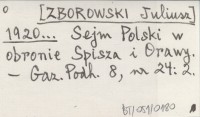 [ZBOROWSKI Juliusz]
1920... Sejm Polski w
obronie Spisza i Orawy.
– Gaz. Podh. 8, nr 24: 2.